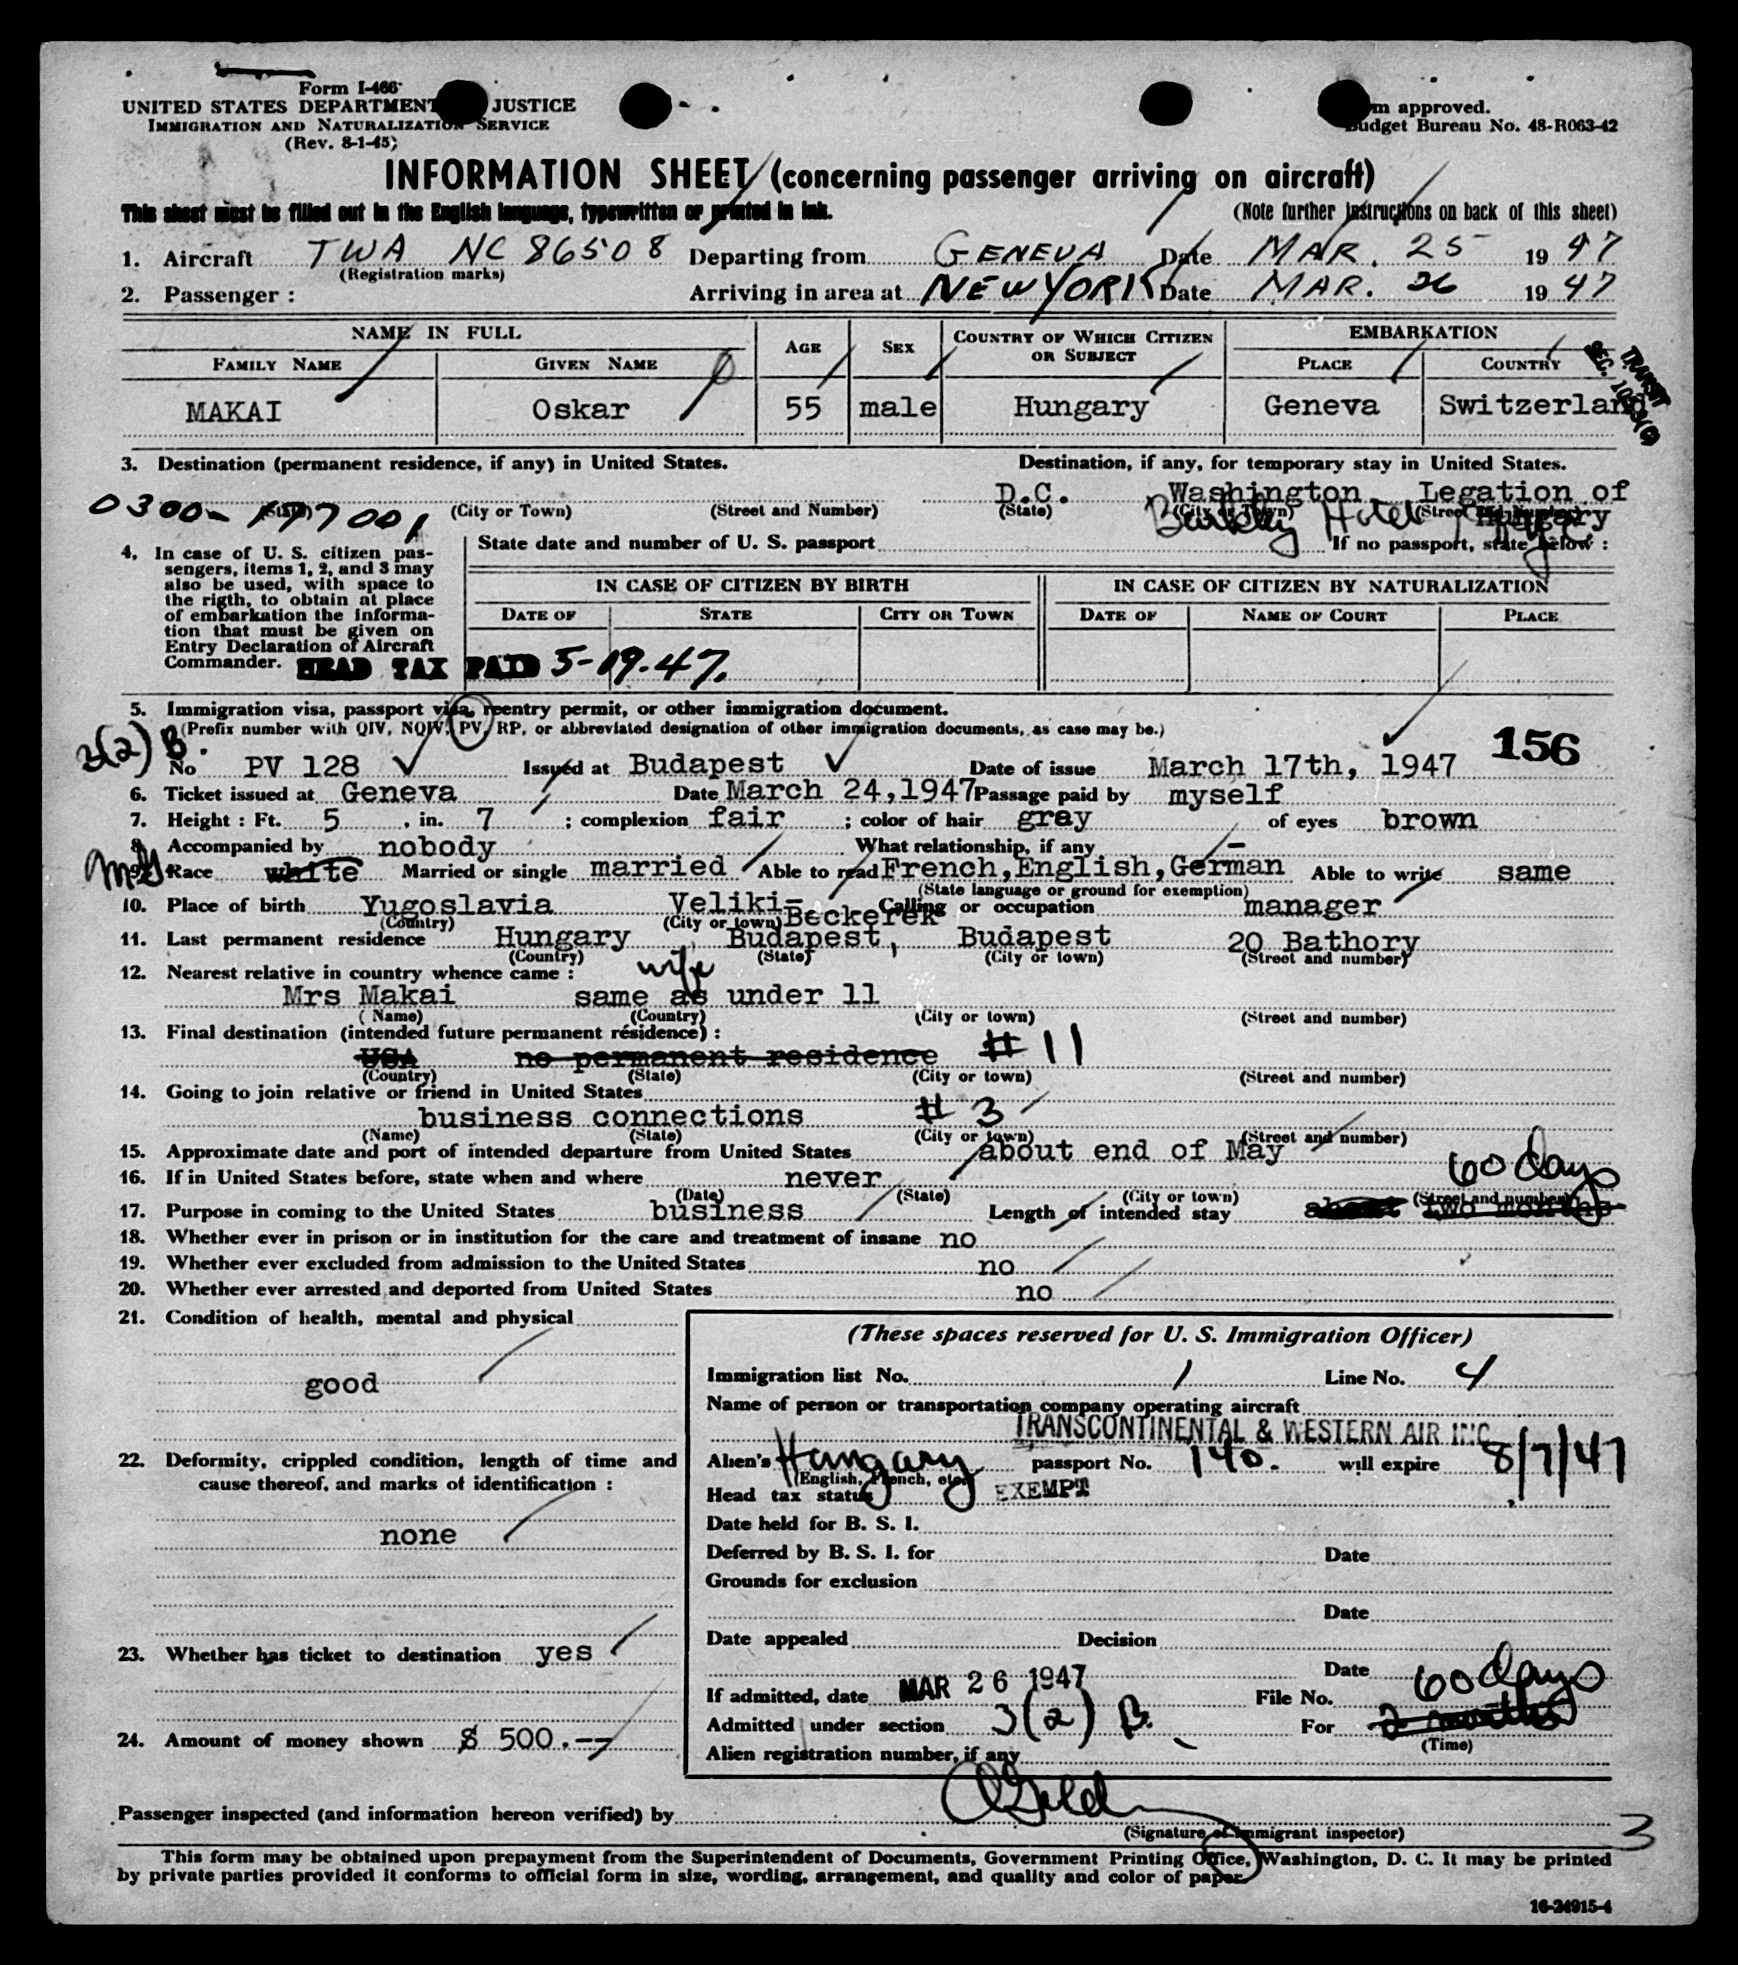 Form I-466
UNITED STATES DEPARTMENT JUSTICE
IMMIGRATION AND NATURALIZATION SERVICE
(Rev. 8-1-45)
m approved.
Budget Bureau No. 48-R063-42
INFORMATION SHEET (concerning passenger arriving on aircraft)
This sheet must be filled out in the English language, typewritten or printed in ink.
(Note further instructions on back of this sheet)
1. Aircraft TWA NC 86508 Departing from GENEVA Date MAR. 25 1947
(Registration marks)
2. Passenger : Arriving in area at NEW YORK Date MAR. 26 1947
NAME IN FULL AGE SEX COUNTRY OF WHICH CITIZEN OR SUBJECT EMBARKATION
FAMILY NAME GIVEN NAME PLACE COUNTRY
TRANSIT
MAKAI Oskar 55 male Hungary Geneva Switzerland
3. Destination (permanent residence, if any) in United States. Destination, if any, for temporary stay in United States.
D.C. Washington Legation of
(City or Town) (Street and Number) (State) (City or Town) (Street and Number)
Hotel Hungary
4. In case of U. S. citizen pas-
sengers, items 1, 2, and 3 may
also be used, with space to
the rigth, to obtain at place
of embarkation the informa-
tion that must be given on
Entry Declaration of Aircraft
Commander.
State date and number of U. S. passport If no passport, state below :
IN CASE OF CITIZEN BY BIRTH IN CASE OF CITIZEN BY NATURALIZATION
DATE OF STATE CITY OR TOWN DATE OF NAME OF COURT PLACE
HEAD TAX PAID 5-19-47.
5. Immigration visa, passport visa, reentry permit, or other immigration document.
(Prefix number with QIV, NQIV, PV, RP, or abbreviated designation of other immigration documents, as case may be.)
3(2) B.
156
No PV 128 Issued at Budapest Date of issue March 17th, 1947
6. Ticket issued at Geneva Date March 24,1947 Passage paid by myself
7. Height : Ft. 5 . in. 7 ; complexion fair ; color of hair gray of eyes brown
8. Accompanied by nobody What relationship, if any -
9. Race white Married or single married Able to read French,English,German Able to write same
(State language or ground for exemption)
10. Place of birth Yugoslavia Veliki-Beckerek Calling or occupation manager
(Country) (City or town)
11. Last permanent residence Hungary Budapest, Budapest 20 Bathory
(Country) (State) (City or town) (Street and number)
12. Nearest relative in country whence came : wife
Mrs Makai same as under 11
(Name) (Country) (City or town) (Street and number)
13. Final destination (intended future permanent residence) :
USA no permanent residence # 11
(Country) (State) (City or town) (Street and number)
14. Going to join relative or friend in United States
business connections # 3
(Name) (State) (City or town) (Street and number)
15. Approximate date and port of intended departure from United States about end of May
16. If in United States before, state when and where never 60 days
(Date) (State) (City or town) (Street and number)
17. Purpose in coming to the United States business Length of intended stay about two months
18. Whether ever in prison or in institution for the care and treatment of insane no
19. Whether ever excluded from admission to the United States no
20. Whether ever arrested and deported from United States no
21. Condition of health, mental and physical
good
22. Deformity, crippled condition, length of time and
cause thereof, and marks of identification :
none
23. Whether has ticket to destination yes
24. Amount of money shown $ 500.--
(These spaces reserved for U. S. Immigration Officer)
Immigration list No. 1 Line No. 4
Name of person or transportation company operating aircraft
TRANSCONTINENTAL & WESTERN AIR INC
Alien's Hungary passport No. 140. will expire 8/7/47
(English, French, etc.)
Head tax status EXEMPT
Date held for B. S. I.
Deferred by B. S. I. for Date
Grounds for exclusion
Date
Date appealed Decision
Date 60 days
If admitted, date MAR 26 1947 File No.
Admitted under section 3(2) B. For 2 months
(Time)
Alien registration number, if any
Passenger inspected (and information hereon verified) by
(Signature of immigrant inspector)
3
This form may be obtained upon prepayment from the Superintendent of Documents, Government Printing Office, Washington, D. C. It may be printed
by private parties provided it conforms to official form in size, wording, arrangement, and quality and color of paper.
16-24915-4